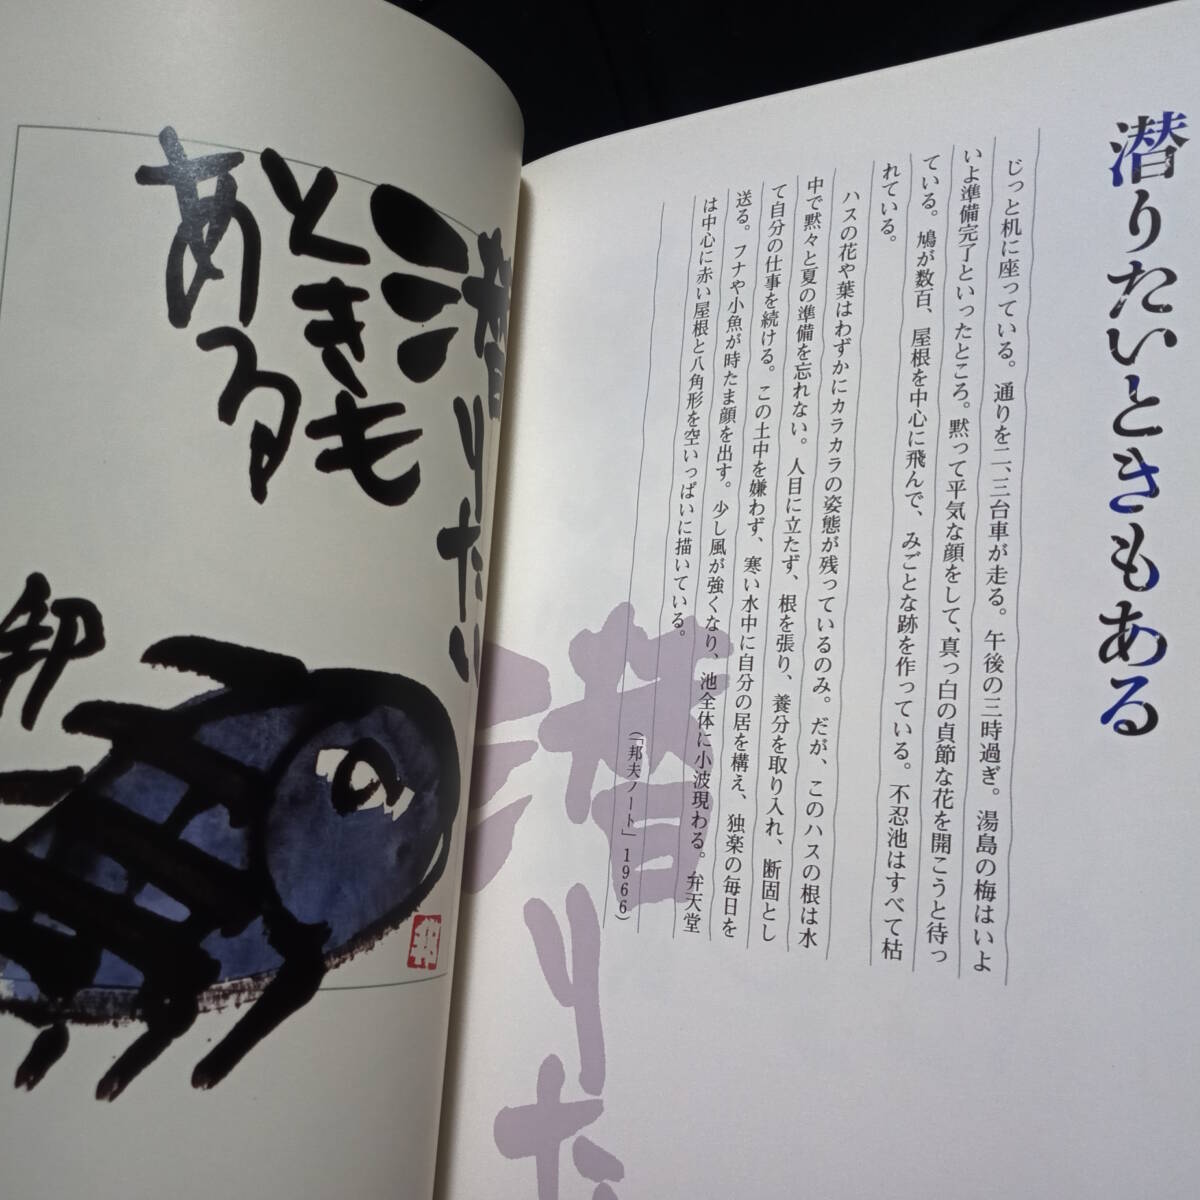 潜りたいときもある
じっと机に座っている。通りを二、三台車が走る。午後の三時過ぎ。湯島の梅はいよ
いよ準備完了といったところ。黙って平気な顔をして、真っ白の貞節な花を開こうと待っ
ている。鳩が数百、屋根を中心に飛んで、みごとな跡を作っている。不忍池はすべて枯
れている。
ハスの花や葉はわずかにカラカラの姿態が残っているのみ。だが、このハスの根は水
中で黙々と夏の準備を忘れない。人目に立たず、根を張り、養分を取り入れ、断固とし
て自分の仕事を続ける。この土中を嫌わず、寒い水中に自分の居を構え、独楽の毎日を
送る。フナや小魚が時たま顔を出す。少し風が強くなり、池全体に小波現わる。弁天堂
は中心に赤い屋根と八角形を空いっぱいに描いている。
(「邦夫ノート」1966)
潜りた
潜りたい
ときも
ある
邦
邦